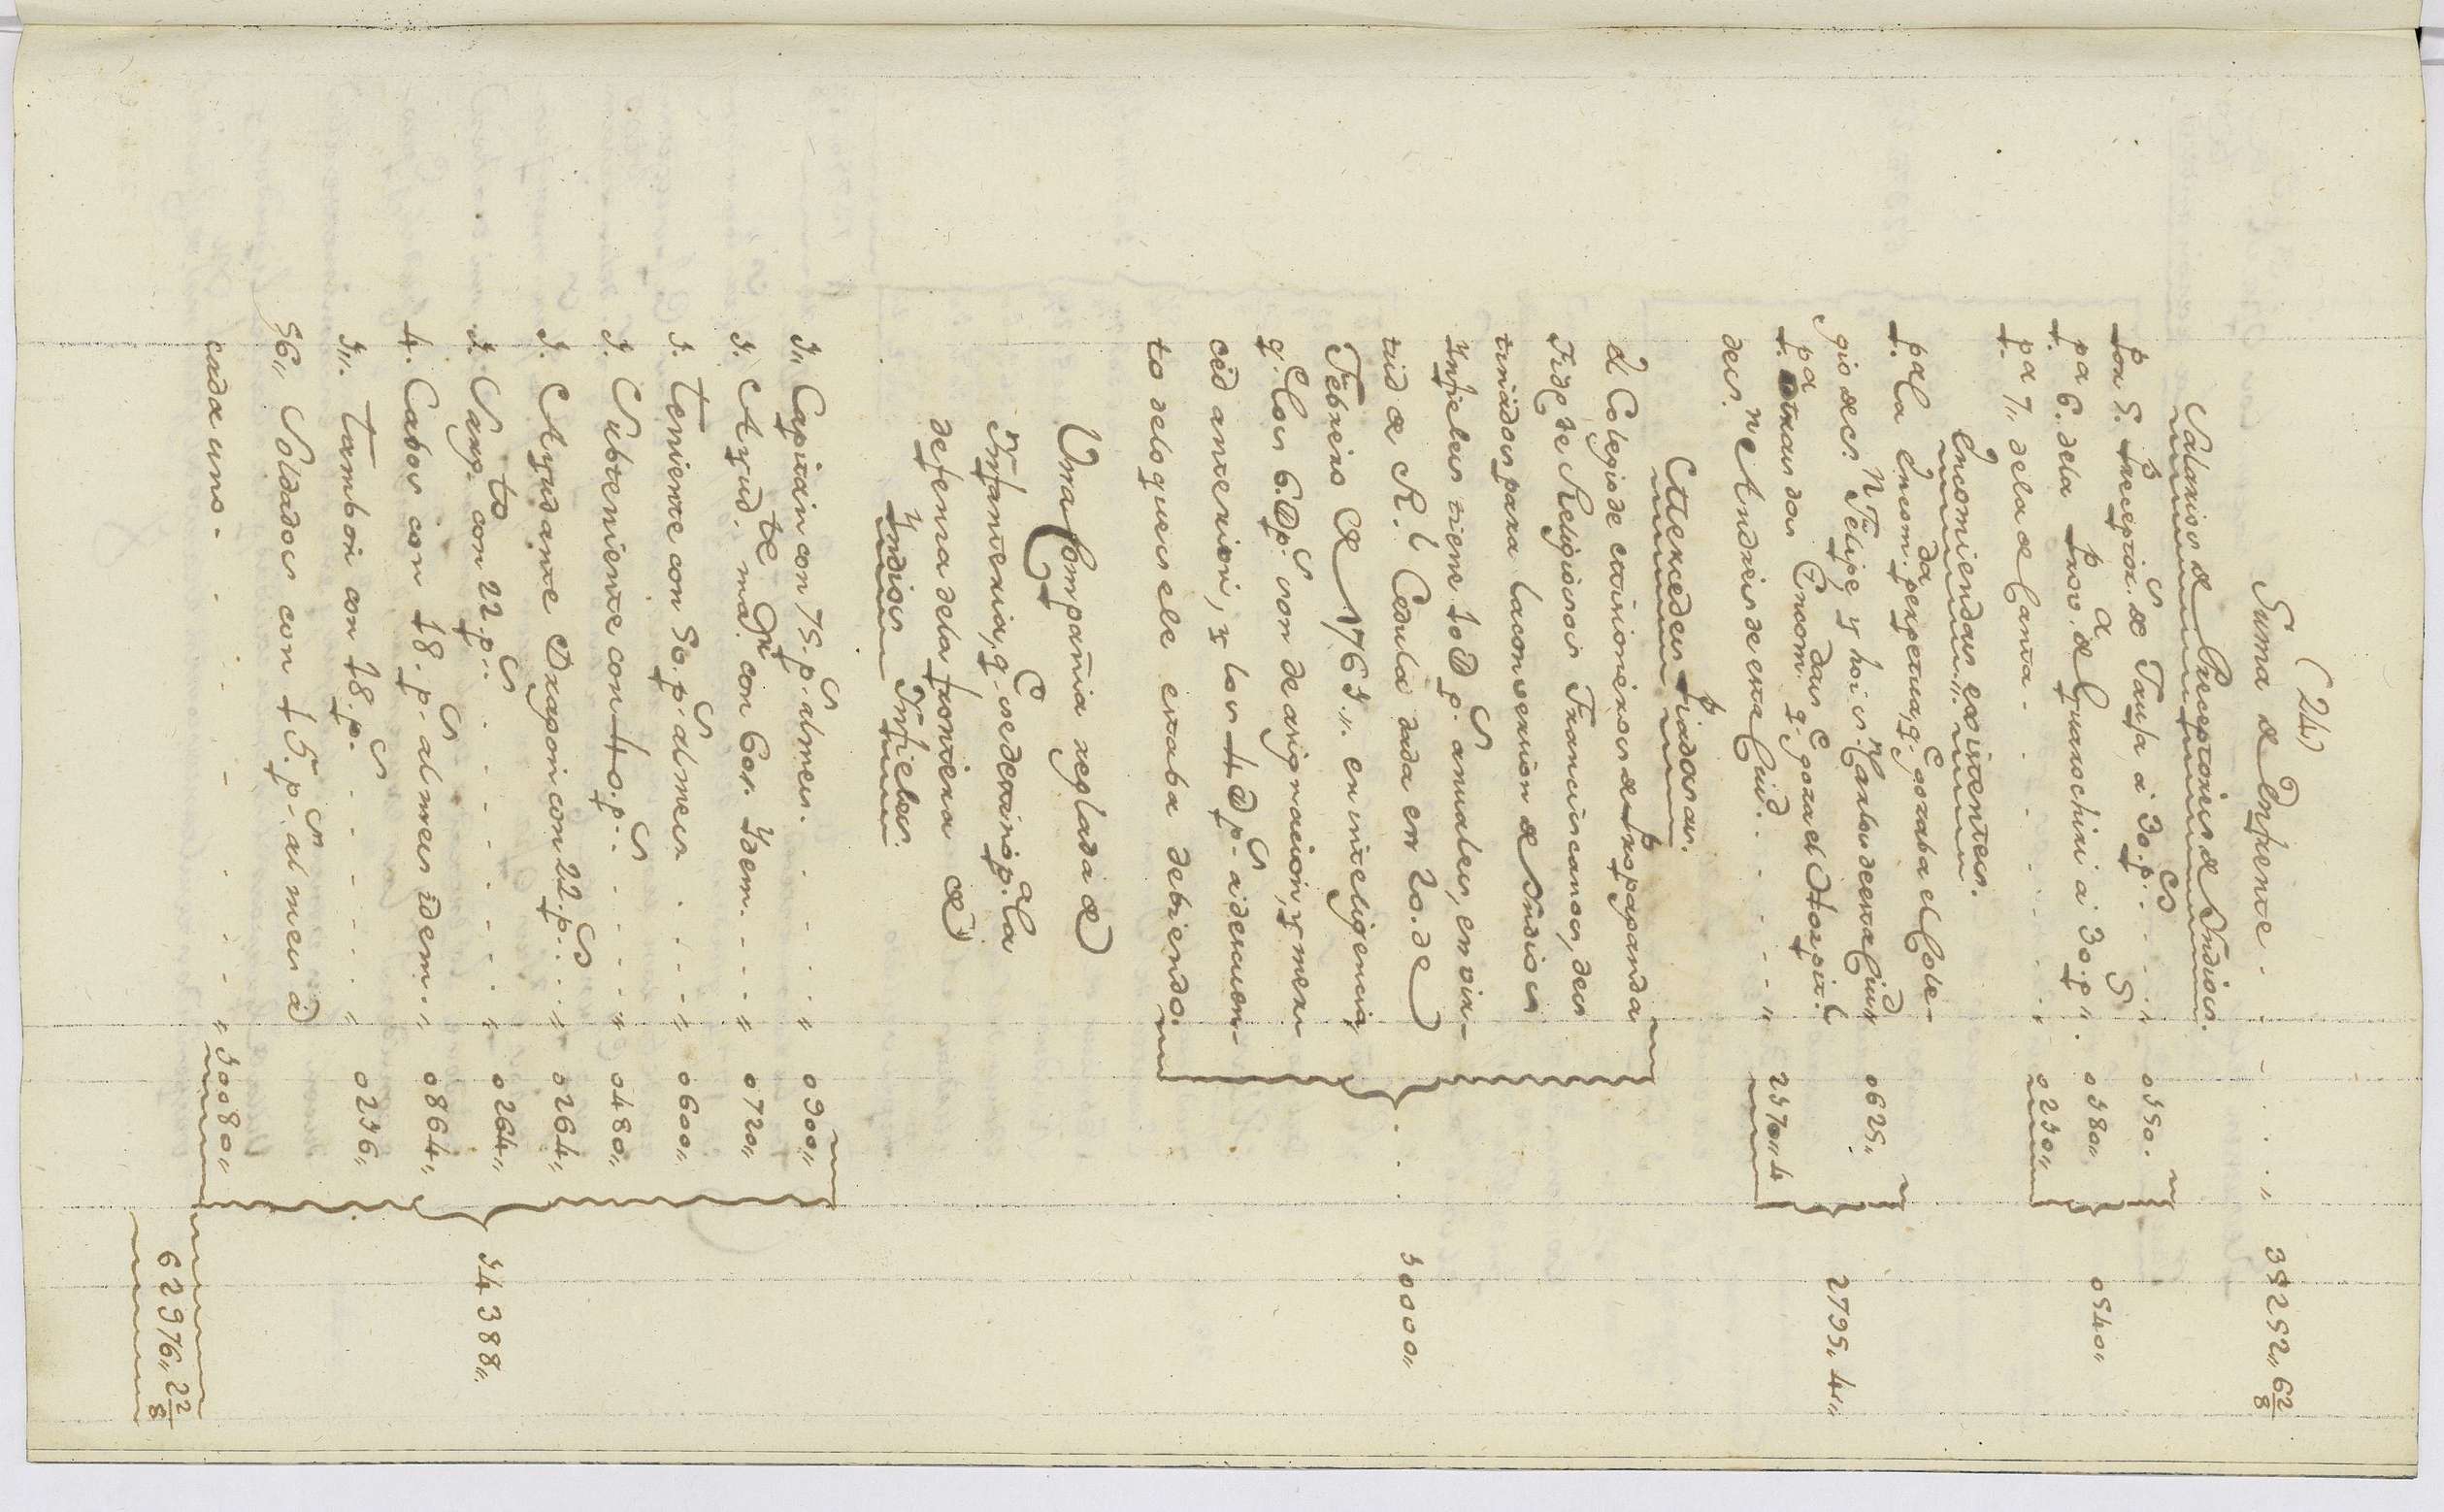 (24)
Suma de Enfrente . . . . . . " 35252,, 6 2/8
Salarios de Preceptores de Yndios.
por 5. Preceptor.es de Tauja á 30. p.es . . . " 0150.
pa 6. dela Prov.a de Guarochiri á 30. p.s ". 0180,, 0540,,
pa 7,, dela de Canta . . . . . . " 0210,,
Encomiendas existentes.
pa la Encom.da perpetua, q.e gozaba el Cole-
gio de S.n Felipe y hoi S.n Carlos de esta Ciud.d " 0625,, 2795,, 4,,
pa otras dos Encom.das q.e goza el Hospit.l
de S.n Andres de esta Ciud.d . . . . . " 2170,, 4
Mercedes piadosas.
El Colegio de Misioneros de Propaganda
Fide de Religiosos Franciscanos, des
tinados para la conversion de Yndios
Ynfieles tiene 10 D p.s annuales, en vir-
tud de R.l Cedula dada en 20. de
Febrero de 1761,, en inteligencia, 10000,,
q.e los 6. D p.s son de asignacion, y mer
ced anterior, y los 4 D p.s á descuen-
to delo que se le estaba debiendo.
Una Compañia reglada de
Ynfanteria, q.e se destinó p.a la
defensa dela frontera de
Yndios Ynfieles.
1,, Capitan con 75. p.s al mes . . . . . " 0900,,
1. Ayud.te ma.or con 60 s. Ydem . . . " 0720,,
1. Teniente con 50. p.s al mes . . . . " 0600,,
1. Subteniente con 40. p.s . . . . . " 0480,,
1. Ayudante Dragon con 22. p.s . . . " 0264,, 14388,,
1. Sarg.to con 22. p.s . . . . . . " 0264,,
4. Cabos con 18. p.s al mes idem . . " 0864,,
1,, Tambor con 18. p.s . . . . . " 0216,,
56,, Soldados con 15. p.s al mes á
cada uno . . . . . . . " 10080,,
62976,, 2 2/8